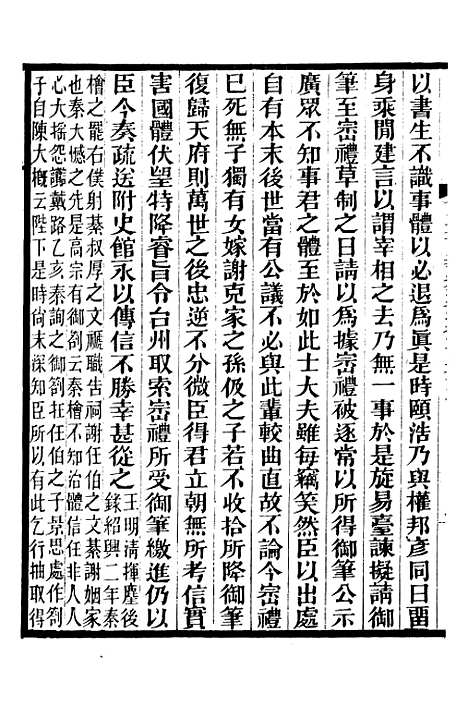 以書生不識事體以必退爲眞是時頤浩乃與權邦彥同日畱
身乘閒建言以謂宰相之去乃無一事於是旋易臺諫擬請御
筆至崈禮草制之日請以爲據崈禮被逐常以所得御筆公示
廣眾不知事君之體至於如此士大夫雖每竊笑然臣以出處
自有本末後世當有公議不必與此輩較曲直故不論今崈禮
巳死無子獨有女嫁謝克家之孫伋之子若不收拾所降御筆
復歸天府則萬世之後忠逆不分微臣得君立朝無所考信實
害國體伏望特降睿旨令台州取索崈禮所受御筆繳進仍以
臣今奏疏送附史館永以傳信不勝幸甚從之
王明清揮麈後
錄紹興二年秦
檜之罷右僕射綦叔厚之文褫職告祠謝任伯之文綦謝姻家
也秦大憾之先是高宗有御劄云秦檜不知治體信任非人人
心大搖怨讟載路乙亥秦詢之御劄在任伯之子景思處作劄
子自陳大概云陛下是時尚未深知臣所以有此乞行抽取得